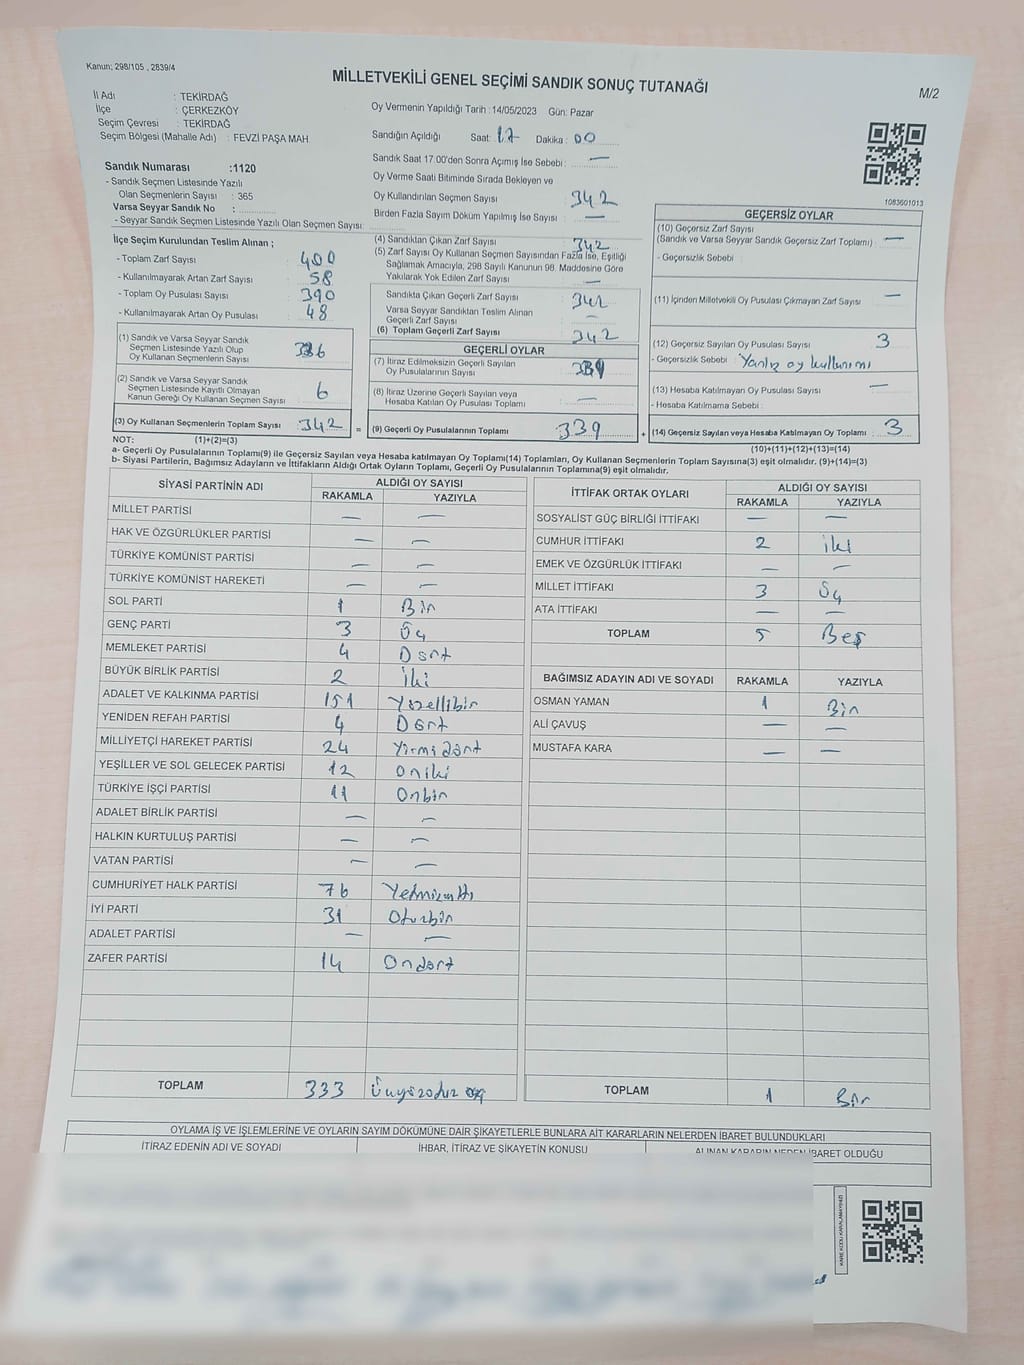 Kanun; 298/105 , 2839/4
MİLLETVEKİLİ GENEL SEÇİMİ SANDIK SONUÇ TUTANAĞI
M/2
İl Adı : TEKİRDAĞ
İlçe : ÇERKEZKÖY
Seçim Çevresi : TEKİRDAĞ
Seçim Bölgesi (Mahalle Adı) : FEVZİ PAŞA MAH.
Sandık Numarası :1120
- Sandık Seçmen Listesinde Yazılı
Olan Seçmenlerin Sayısı : 365
Varsa Seyyar Sandık No :
- Seyyar Sandık Seçmen Listesinde Yazılı Olan Seçmen Sayısı:
Oy Vermenin Yapıldığı Tarih : 14/05/2023 Gün: Pazar
Sandığın Açıldığı Saat: 17 Dakika : 00
Sandık Saat 17:00'den Sonra Açımış İse Sebebi : —
Oy Verme Saati Bitiminde Sırada Bekleyen ve
Oy Kullandırılan Seçmen Sayısı 342
Birden Fazla Sayım Döküm Yapılmış İse Sayısı —
1083601013
İlçe Seçim Kurulundan Teslim Alınan ;
- Toplam Zarf Sayısı : 400
- Kullanılmayarak Artan Zarf Sayısı : 58
- Toplam Oy Pusulası Sayısı : 390
- Kullanılmayarak Artan Oy Pusulası : 48
(1) Sandık ve Varsa Seyyar Sandık
Seçmen Listesinde Yazılı Olup
Oy Kullanan Seçmenlerin Sayısı 336
(2) Sandık ve Varsa Seyyar Sandık
Seçmen Listesinde Kayıtlı Olmayan
Kanun Gereği Oy Kullanan Seçmen Sayısı 6
(3) Oy Kullanan Seçmenlerin Toplam Sayısı :342
(4) Sandıktan Çıkan Zarf Sayısı 342
(5) Zarf Sayısı Oy Kullanan Seçmen Sayısından Fazla İse, Eşitliği
Sağlamak Amacıyla, 298 Sayılı Kanunun 98. Maddesine Göre
Yakılarak Yok Edilen Zarf Sayısı —
Sandıkta Çıkan Geçerli Zarf Sayısı 342
Varsa Seyyar Sandıktan Teslim Alınan
Geçerli Zarf Sayısı —
(6) Toplam Geçerli Zarf Sayısı 342
GEÇERLİ OYLAR
(7) İtiraz Edilmeksizin Geçerli Sayılan
Oy Pusulalarının Sayısı 339
(8) İtiraz Üzerine Geçerli Sayılan veya
Hesaba Katılan Oy Pusulası Toplamı —
= (9) Geçerli Oy Pusulalarının Toplamı 339 +
GEÇERSİZ OYLAR
(10) Geçersiz Zarf Sayısı
(Sandık ve Varsa Seyyar Sandık Geçersiz Zarf Toplamı) : —
- Geçersizlik Sebebi :
(11) İçinden Milletvekili Oy Pusulası Çıkmayan Zarf Sayısı —
(12) Geçersiz Sayılan Oy Pusulası Sayısı 3
- Geçersizlik Sebebi : Yanlış oy kullanımı
(13) Hesaba Katılmayan Oy Pusulası Sayısı —
- Hesaba Katılmama Sebebi :
(14) Geçersiz Sayılan veya Hesaba Katılmayan Oy Toplamı : 3
NOT: (1)+(2)=(3)
(10)+(11)+(12)+(13)=(14)
a- Geçerli Oy Pusulalarının Toplamı(9) ile Geçersiz Sayılan veya Hesaba katılmayan Oy Toplamı(14) Toplamları, Oy Kullanan Seçmenlerin Toplam Sayısına(3) eşit olmalıdır. (9)+(14)=(3)
b- Siyasi Partilerin, Bağımsız Adayların ve İttifakların Aldığı Ortak Oyların Toplamı, Geçerli Oy Pusulalarının Toplamına(9) eşit olmalıdır.
SİYASİ PARTİNİN ADI ALDIĞI OY SAYISI
RAKAMLA YAZIYLA
MİLLET PARTİSİ — —
HAK VE ÖZGÜRLÜKLER PARTİSİ — —
TÜRKİYE KOMÜNİST PARTİSİ — —
TÜRKİYE KOMÜNİST HAREKETİ — —
SOL PARTİ 1 Bir
GENÇ PARTİ 3 Üç
MEMLEKET PARTİSİ 4 Dört
BÜYÜK BİRLİK PARTİSİ 2 İki
ADALET VE KALKINMA PARTİSİ 151 Yüzellibir
YENİDEN REFAH PARTİSİ 4 Dört
MİLLİYETÇİ HAREKET PARTİSİ 24 Yirmidört
YEŞİLLER VE SOL GELECEK PARTİSİ 12 Oniki
TÜRKİYE İŞÇİ PARTİSİ 11 Onbir
ADALET BİRLİK PARTİSİ — —
HALKIN KURTULUŞ PARTİSİ — —
VATAN PARTİSİ — —
CUMHURİYET HALK PARTİSİ 76 Yetmişaltı
İYİ PARTİ 31 Otuzbir
ADALET PARTİSİ — —
ZAFER PARTİSİ 14 Ondört
TOPLAM 333 Üçyüzotuz üç
İTTİFAK ORTAK OYLARI ALDIĞI OY SAYISI
RAKAMLA YAZIYLA
SOSYALİST GÜÇ BİRLİĞİ İTTİFAKI — —
CUMHUR İTTİFAKI 2 İki
EMEK VE ÖZGÜRLÜK İTTİFAKI — —
MİLLET İTTİFAKI 3 Üç
ATA İTTİFAKI — —
TOPLAM 5 Beş
BAĞIMSIZ ADAYIN ADI VE SOYADI RAKAMLA YAZIYLA
OSMAN YAMAN 1 Bir
ALİ ÇAVUŞ — —
MUSTAFA KARA — —
TOPLAM 1 Bir
OYLAMA İŞ VE İŞLEMLERİNE VE OYLARIN SAYIM DÖKÜMÜNE DAİR ŞİKAYETLERLE BUNLARA AİT KARARLARIN NELERDEN İBARET BULUNDUKLARI
İTİRAZ EDENİN ADI VE SOYADI İHBAR, İTİRAZ VE ŞİKAYETİN KONUSU ALINAN KARARIN NEDEN İBARET OLDUĞU
KARE KODU KARALAMAYINIZ!